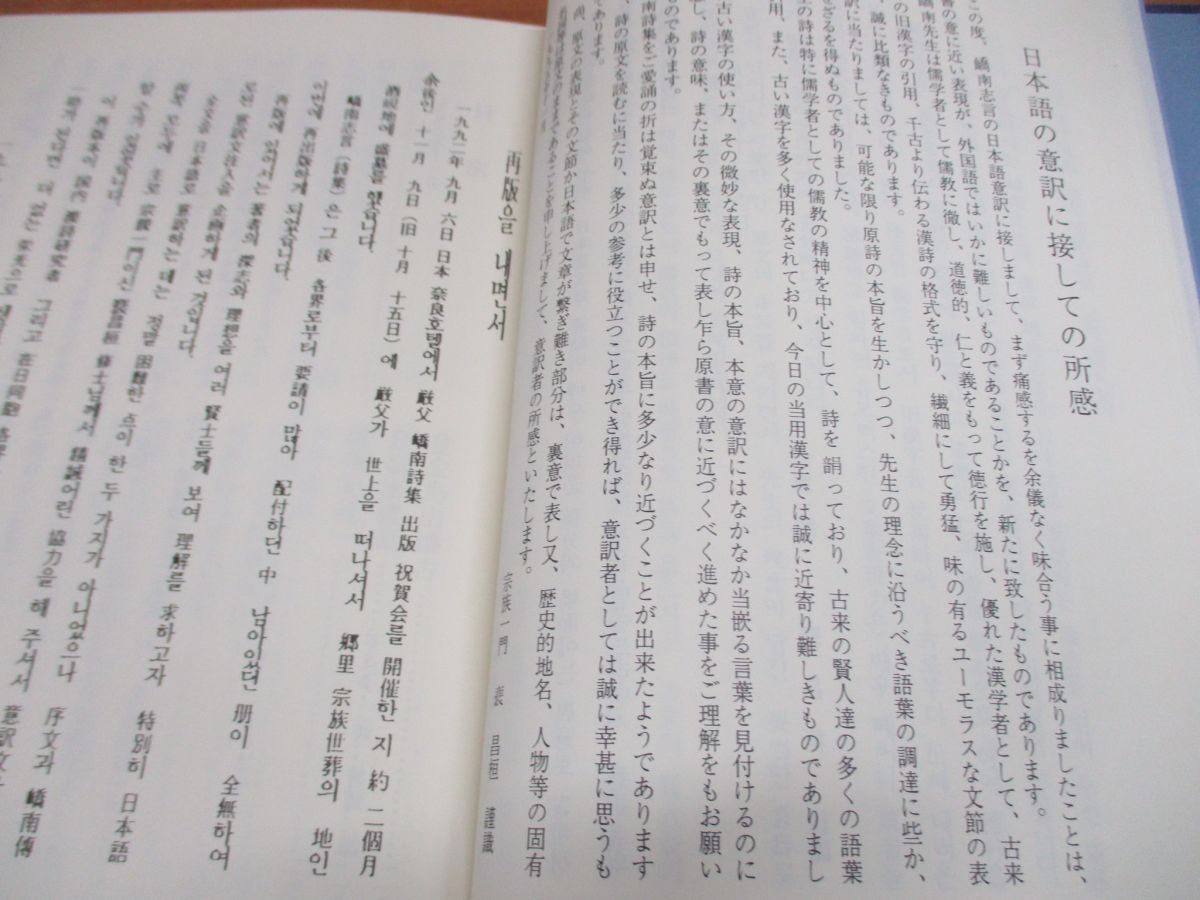 日本語の意訳に接しての所感
この度、嶠南志言の日本語意訳に接しまして、まず痛感するを余儀なく味合う事に相成りましたことは、
書の意に近い表現が、外国語ではいかに難しいものであることかを、新たに致したものであります。
嶠南先生は儒学者として儒教に徹し、道徳的、仁と義をもって徳行を施し、優れた漢学者として、古来
の旧漢字の引用、千古より伝わる漢詩の格式を守り、繊細にして勇猛、味の有るユーモラスな文節の表
誠に比類なきものであります。
訳に当たりましては、可能な限り原詩の本旨を生かしつつ、先生の理念に沿うべき語葉の調達に些か、
ざるを得ぬものでありました。
の詩は特に儒学者としての儒教の精神を中心として、詩を韻っており、古来の賢人達の多くの語葉
用、また、古い漢字を多く使用なされており、今日の当用漢字では誠に近寄り難しきものでありまし
古い漢字の使い方、その微妙な表現、詩の本旨、本意の意訳にはなかなか当嵌る言葉を見付けるのに
し、詩の意味、またはその裏意でもって表し乍ら原書の意に近づくべく進めた事をご理解をもお願い
ものであります。
南詩集をご愛誦の折は覚束ぬ意訳とは申せ、詩の本旨に多少なり近づくことが出来たようであります
詩の原文を読むに当たり、多少の参考に役立つことができ得れば、意訳者としては誠に幸甚に思うも
であります。
尚、原文の表現とその文節が日本語で文章が繋ぎ難き部分は、裏意で表し又、歴史的地名、人物等の固有
は原文のままであることを申し上げまして、意訳者の所感といたします。
宗族一門 裴 昌桓 謹識
再版을 내면서
一九九二年 九月 六日 日本 奈良호텔에서 厳父 嶠南詩集 出版 祝賀会를 開催한 지 約 二個月
余後인 十一月 九日(旧 十月 十五日)에 厳父가 世上을 떠나셔서 郷里 宗族世葬의 地인
酒峴地에 盛墓를 했습니다.
嶠南志言(詩集)은 그 後 各界로부터 要請이 많아 配付하던 中 남아있던 册이 全無하여
이번에 再出版하게 되었습니다.
再版에 있어서는 著者의 深志와 理想을 여러 賢士들께 보여 理解를 求하고자 特別히 日本語
로된 意訳文注入을 企画하게 된 것입니다.
全文을 日本語로 意訳하는 데는 정말 困難한 点이 한 두 가지가 아니었으나 序文과 嶠南傳
主로 宗親一門이신 裴昌桓 修士님께서 精誠어린 協力을 해 주셔서 意訳文
이 再版本이 漢詩研究者 그리고 在日同胞